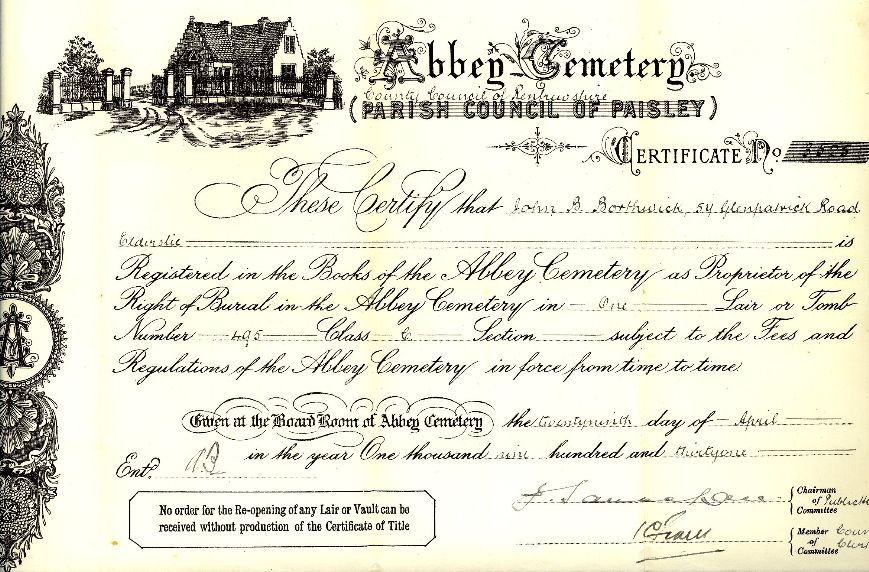 Abbey Cemetery
County Council of Renfrewshire
(PARISH COUNCIL OF PAISLEY)
CERTIFICATE No.
These Certify that John B. Borthwick, 54 Glenpatrick Road
Elderslie is
Registered in the Books of the Abbey Cemetery as Proprietor of the
Right of Burial in the Abbey Cemetery in One Lair or Tomb
Number 495 Class C Section subject to the Fees and
Regulations of the Abbey Cemetery in force from time to time.
Given at the Board Room of Abbey Cemetery the twentyninth day of April
in the year One thousand nine hundred and thirtyone
Entd.
No order for the Re-opening of any Lair or Vault can be
received without production of the Certificate of Title
Chairman
of Public
Committee
Member
of
Committee
A